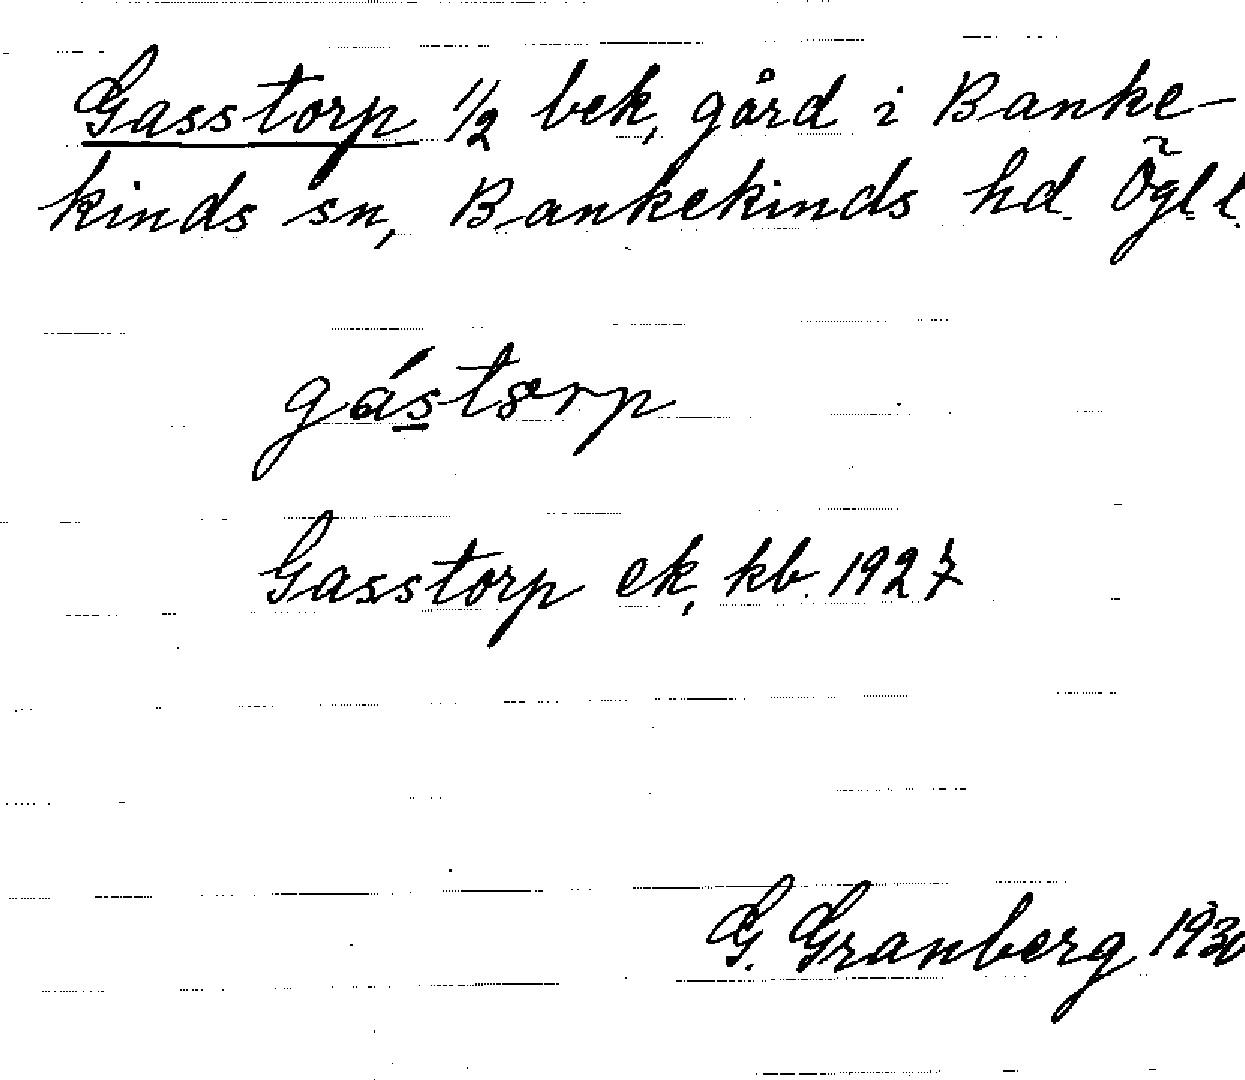 Gasstorp 1/2 bek, gård i Banke-
kinds sn, Bankekinds hd. Ögl.
gástorp
Gasstorp ek, kb. 1927
G. Granberg 1930